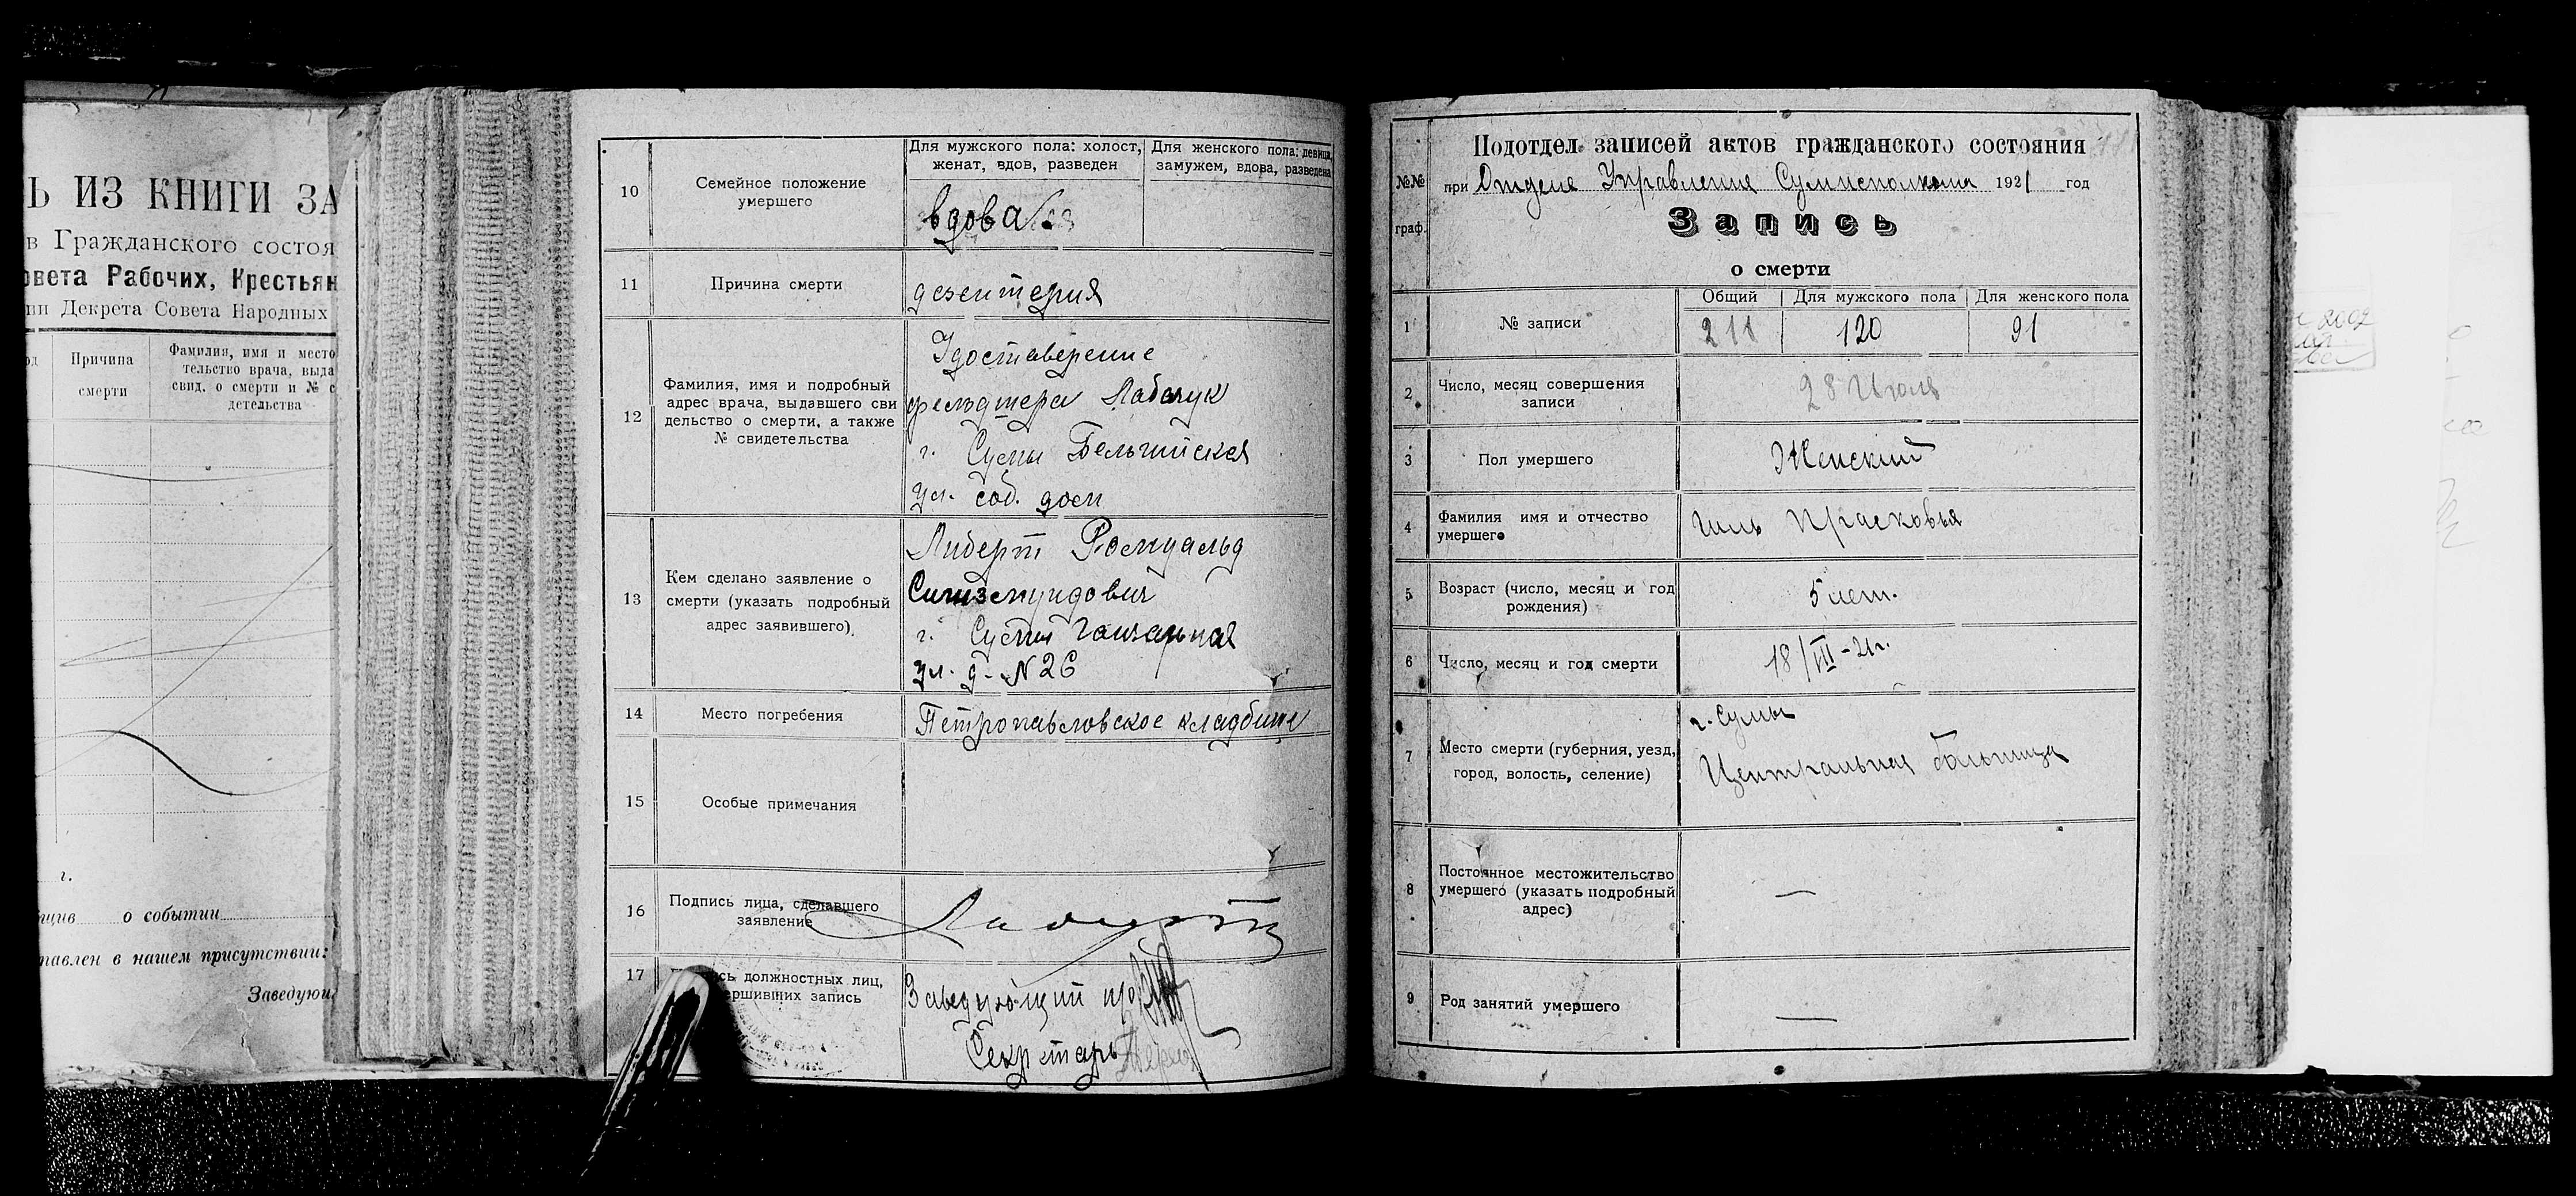 Ь ИЗ КНИГИ ЗА
в Гражданского состоя
овета Рабочих, Крестьян
ии Декрета Совета Народных
Причина
смерти
Фамилия, имя и место
тельство врача, выда
свид. о смерти и № с
детельства
г.
о событии
тавлен в нашем присутствии:
Заведующ
10
Семейное положение
умершего
Для мужского пола: холост,
женат, вдов, разведен
Для женского пола: девица,
замужем, вдова, разведена
вдова
11
Причина смерти
дезентерия
12
Фамилия, имя и подробный
адрес врача, выдавшего сви
дельство о смерти, а также
№ свидетельства
Удостоверение
фельдшера Лабачук
г. Сумы Бельгийская
ул. соб. дом
13
Кем сделано заявление о
смерти (указать подробный
адрес заявившего)
Либерт Ромуальд
Сигизмундович
г. Сумы
ул. д. N 26
14
Место погребения
Петропавловское кладбище
15
Особые примечания
16
Подпись лица, сделавшего
заявление
17
должностных лиц,
ршивших запись
Заведующий
Секретарь
№№
граф.
Подотдел записей актов гражданского состояния
при Отделе Управления Сумисполкома 1921 год
Запись
о смерти
1
№ записи
Общий
Для мужского пола
Для женского пола
211
120
91
2
Число, месяц совершения
записи
28 Июля
3
Пол умершего
Женский
4
Фамилия имя и отчество
умершего
Гиль Прасковья
5
Возраст (число, месяц и год
рождения)
5 лет.
6
Число, месяц и год смерти
18/VII-21г.
7
Место смерти (губерния, уезд,
город, волость, селение)
г. Сумы
Центральная больница
8
Постоянное местожительство
умершего (указать подробный
адрес)
—
9
Род занятий умершего
—